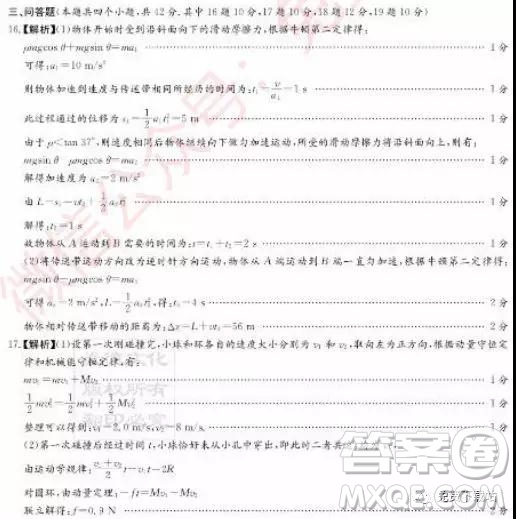 三、问答题(本题共四个小题,共42分.其中16题10分,17题10分,18题12分,19题10分)
16.【解析】(1)物体开始时受到沿斜面向下的滑动摩擦力,根据牛顿第二定律得:
μmgcos θ+mgsin θ=ma₁ 1分
可得:a₁=10 m/s²
则物体加速到速度与传送带相同所经历的时间为:t₁=v/a₁=1 s 1分
此过程通过的位移为 s₁=1/2 a₁t₁²=5 m 1分
由于 μ<tan 37°,则速度相同后物体继续向下做匀加速运动,所受的滑动摩擦力将沿斜面向上,则有:
mgsin θ-μmgcos θ=ma₂ 1分
解得加速度为 a₂=2 m/s²
由 L-s₁=vt₂+1/2 a₂t₂²
解得:t₂=1 s 1分
故物体从 A 运动到 B 需要的时间为:t=t₁+t₂=2 s 1分
(2)将传送带运动方向改为逆时针方向运动,物体从 A 端运动到 B 端一直匀加速,根据牛顿第二定律得:
mgsin θ-μmgcos θ=ma₃
可得 a₃=2 m/s²,L=1/2 a₃t₃²,得:t₃=4 s 2分
物体相对传送带移动的距离为:Δx=L+vt₃=56 m 2分
17.【解析】(1)设第一次刚碰撞完,小球和环各自的速度大小分别为 v₁ 和 v₂,取向左为正方向,根据动量守恒定
律和机械能守恒定律,有:
mv₀=mv₁+Mv₂ 1分
1/2 mv₀²=1/2 mv₁²+1/2 Mv₂² 1分
整理可以得到:v₁=2.0 m/s,v₂=8 m/s 1分
(2)第一次碰撞后经过时间 t,小球恰好未从小孔中穿出,即此时二者共
由运动学规律,(v₁+v₂)/2 t-v₁t=2R
对圆环,由动量定理:-ft=Mv₁-Mv₂
联立解得:f=0.9 N 2分
版权所有
翻印必究
微信公众号:
答案圈
MXQE.COM